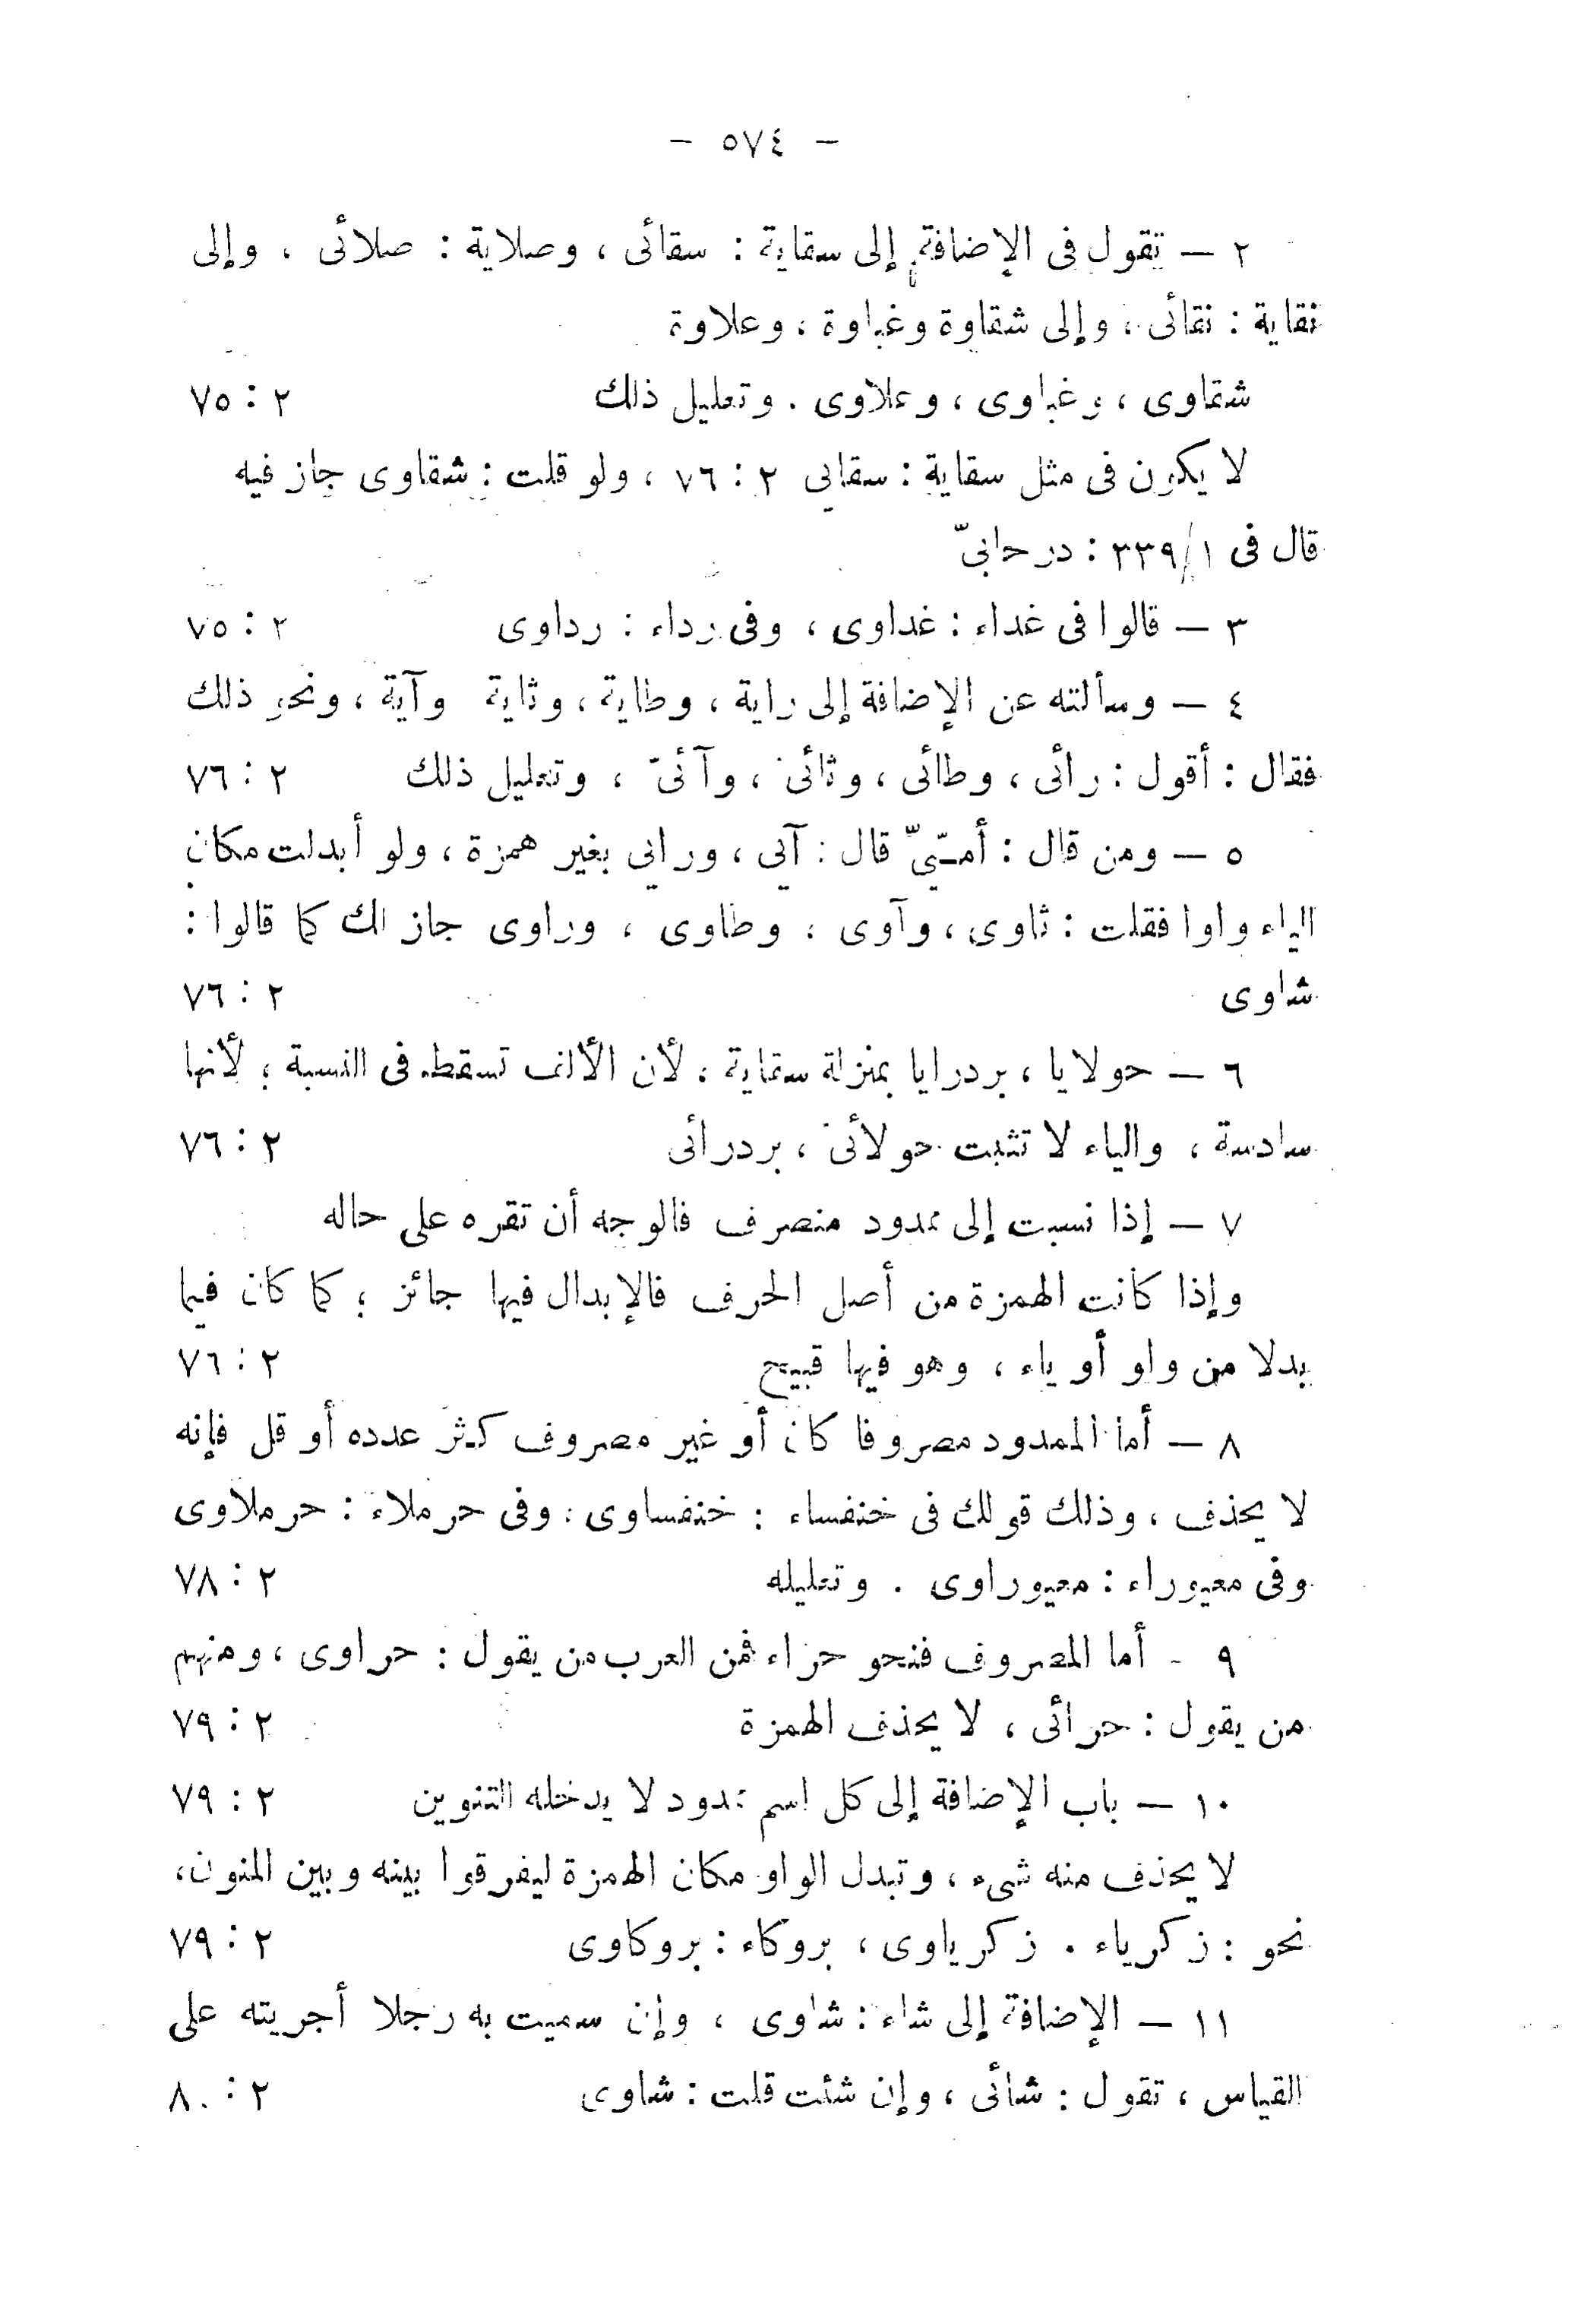 — ٥٧٤ —
٢ — تقول فى الإضافة إلى سقاية : سقائى ، وصلاية : صلائى ، وإلى
نقاية : نقائى ، وإلى شقاوة وغباوة ، وعلاوة
شقاوى ، وغباوى ، وعلاوى . وتعليل ذلك ٢ : ٧٥
لا يكون فى مثل سقاية : سقايى ٢ : ٧٦ ، ولو قلت : شقاوى جاز فيه
قال فى ١/٣٣٩ : درحايىّ
٣ — قالوا فى غداء : غداوى ، وفى رداء : رداوى ٢ : ٧٥
٤ — وسألته عن الإضافة إلى راية ، وطاية ، وثاية وآية ، ونحو ذلك
فقال : أقول : رائى ، وطائى ، وثائى ، وآئىّ ، وتعليل ذلك ٢ : ٧٦
٥ — ومن قال : أميّىّ قال : آيى ، ورايى بغير همزة ، ولو أبدلت مكان
الياء واوا فقلت : ثاوى ، وآوى ، وطاوى ، وراوى جاز لك كما قالوا :
شاوى ٢ : ٧٦
٦ — حولايا ، بردرايا بمنزلة سقاية ، لأن الألف تسقط فى النسبة ؛ لأنها
سادسة ، والياء لا تثبت حولائى ، بردرائى ٢ : ٧٦
٧ — إذا نسبت إلى ممدود منصرف فالوجه أن تقره على حاله
وإذا كانت الهمزة من أصل الحرف فالإبدال فيها جائز ؛ كما كان فيما
بدلا من واو أو ياء ، وهو فيها قبيح ٢ : ٧٦
٨ — أما الممدود مصروفا كان أو غير مصروف كثر عدده أو قل فإنه
لا يحذف ، وذلك قولك فى خنفساء : خنفساوى ، وفى حرملاء : حرملاوى
وفى معيوراء : معيوراوى . وتعليله ٢ : ٧٨
٩ - أما المصروف فنحو حراء فمن العرب من يقول : حراوى ، ومنهم
من يقول : حرائى ، لا يحذف الهمزة ٢ : ٧٩
١٠ — باب الإضافة إلى كل اسم ممدود لا يدخله التنوين ٢ : ٧٩
لا يحذف منه شىء ، وتبدل الواو مكان الهمزة ليفرقوا بينه وبين المنون،
نحو : زكرياء . زكرياوى ، بروكاء : بروكاوى ٢ : ٧٩
١١ — الإضافة إلى شاء : شاوى ، وإن سميت به رجلا أجريته على
القياس ، تقول : شائى ، وإن شئت قلت : شاوى ٢ : ٨٠